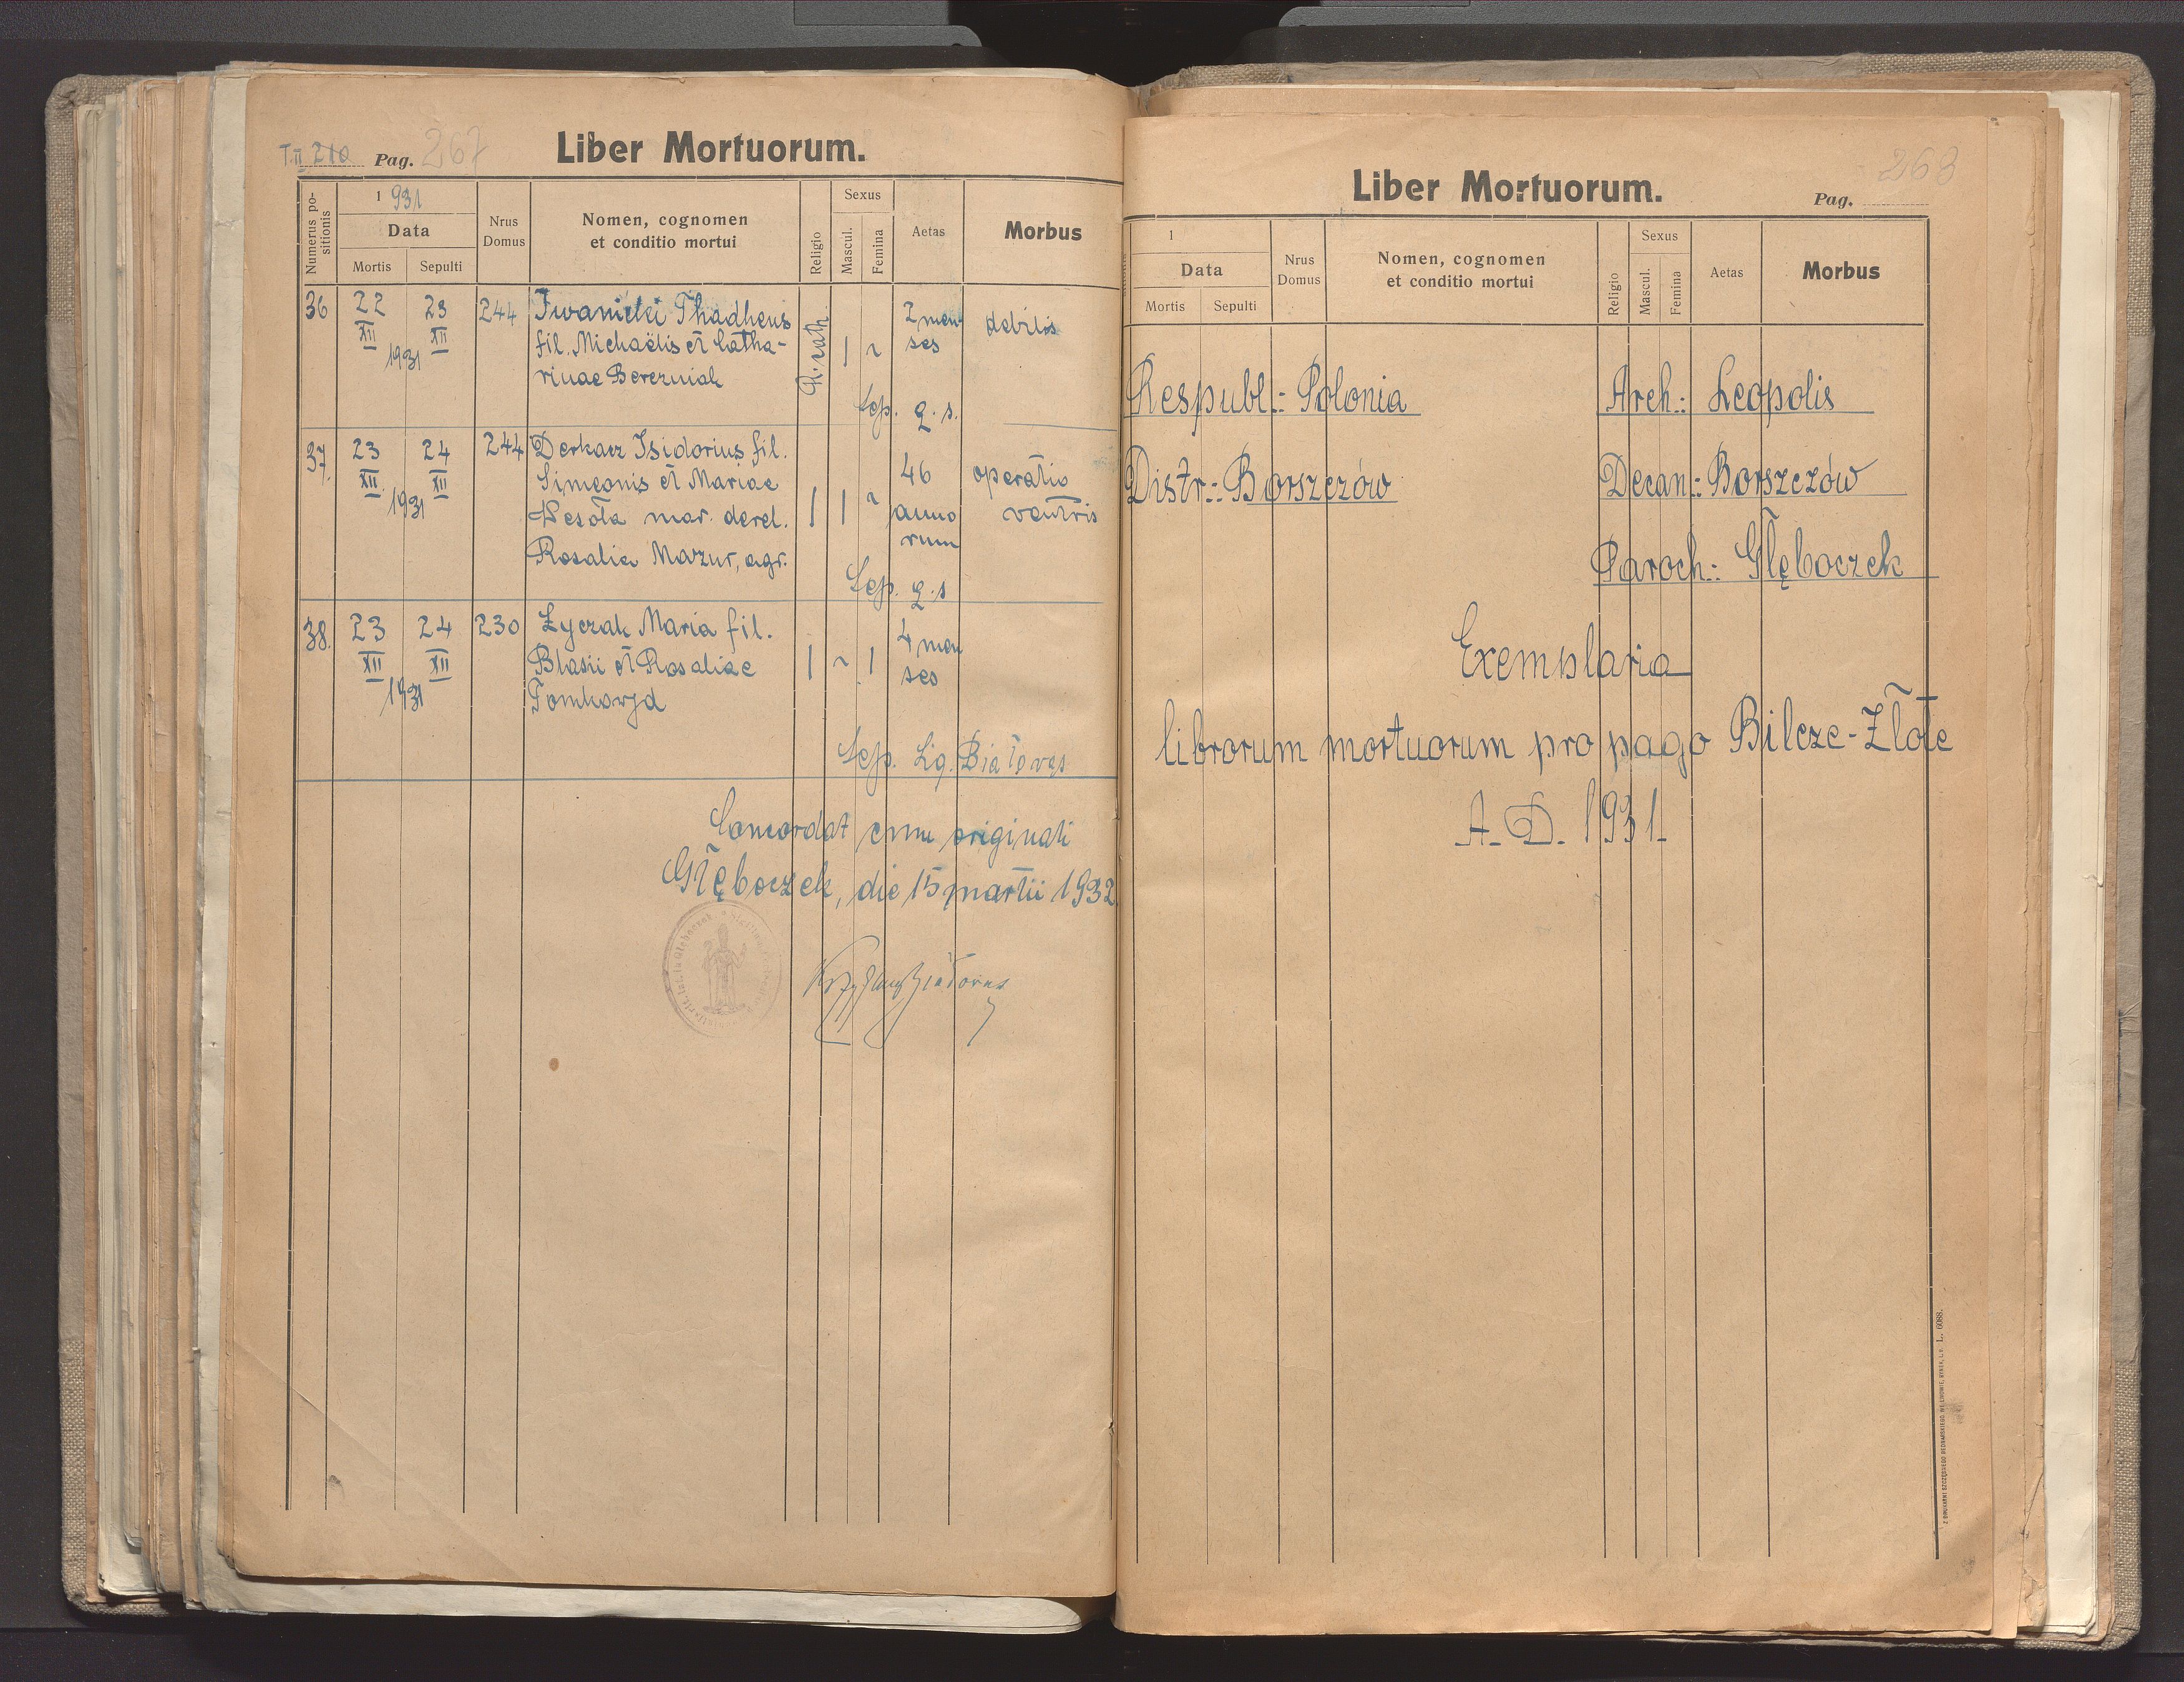 T.II 210 Pag. 267 Liber Mortuorum.
Numerus positionis
1931
Data
Mortis Sepulti
Nrus
Domus
Nomen, cognomen
et conditio mortui
Religio
Sexus
Mascul.
Femina
Aetas
Morbus
36 22 XII 23 XII 1931 244 Iwanicki Thadheus R. cath 2 men- debilis
fil. Michaëlis et Catha- ses
rinae Berezniak
Sep. q. s.
37. 23 XII 24 XII 1931 244 Derkacz Isidorius fil.
Simeonis et Mariae 46 operatio
Wesoła mar. derel. anno ventris
Rosalia Mazur, agr. rum
Sep. q. s
38. 23 XII 24 XII 1931 230 Życzak Maria fil. 4 men
Blasii et Rosaliae ses
Sep. Lig. Białowąs
Concordat cum originali
Głęboczek, die 15 martii 1932
Liber Mortuorum. Pag. 268
1
Data
Mortis Sepulti
Nrus
Domus
Nomen, cognomen
et conditio mortui
Religio
Sexus
Mascul.
Femina
Aetas
Morbus
Respubl.: Polonia Arch.: Leopolis
Distr.: Borszczów Decan.: Borszczów
Paroch.: Głęboczek
Exemplaria
librorum mortuorum pro pago Bilcze-Złote
A. D. 1931